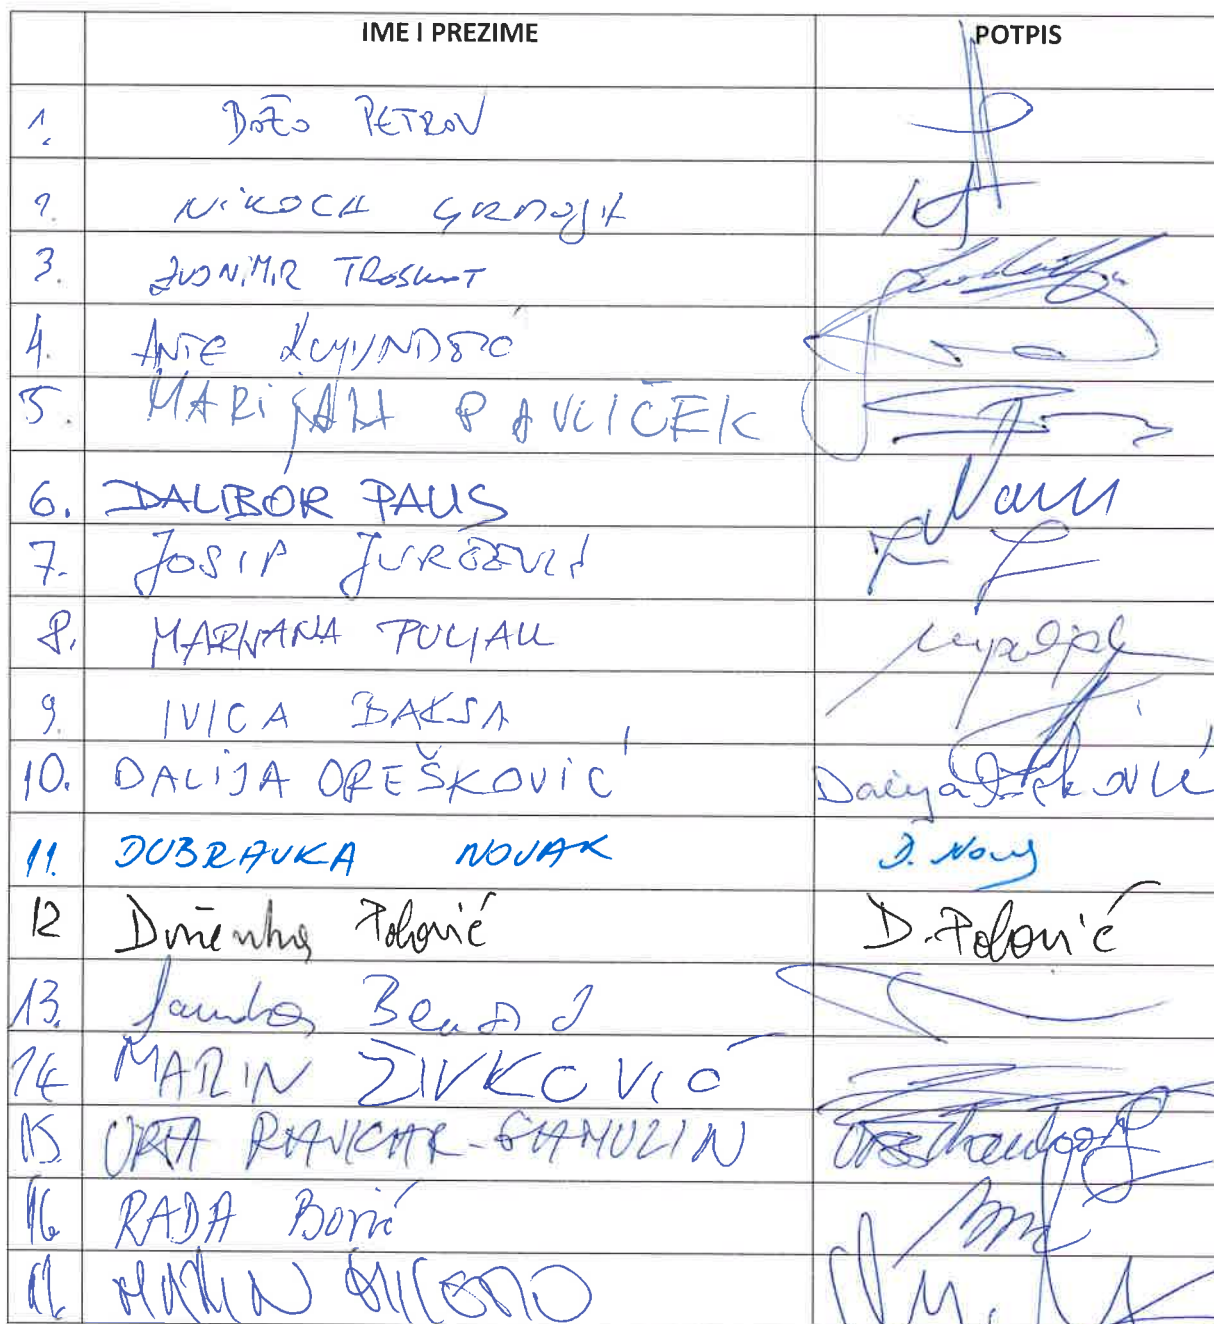 IME I PREZIME POTPIS
1. BOŽO PETROV
2. NIKOLA GRMOJA
3. ZVONIMIR TROSKOT
4. ANTE KUJUNDŽIĆ
5. MARIJAN PAVLIČEK
6. DALIBOR PAUS
7. JOSIP JURČEVIĆ
8. MARIJANA PULJAK
9. IVICA BAKSA
10. DALIJA OREŠKOVIĆ Dalija Orešković
11. DUBRAVKA NOVAK D. Novak
12 Dušenka Polović D. Polović
13. Sandra Benčić
14 MARIN ŽIVKOVIĆ
15 URŠA RAUKAR-GAMULIN
16 RADA Borić